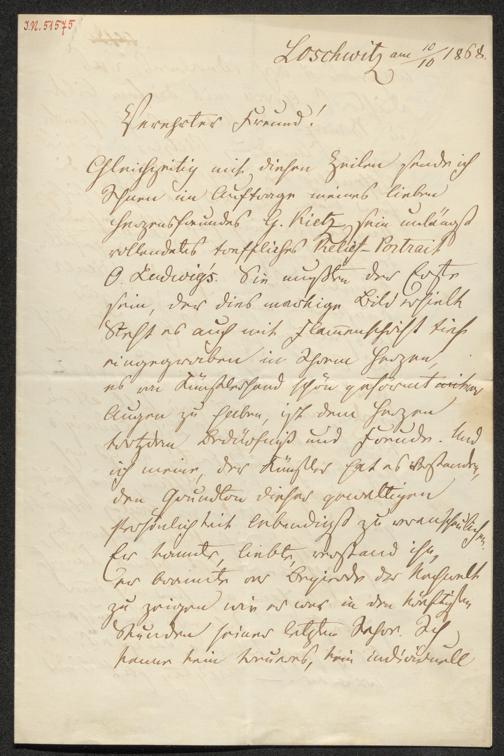 I.N. 51575
Loschwitz am 10/10 1868.
Verehrter Freund!
Gleichzeitig mit diesen Zeilen sende ich
Ihnen im Auftrage meines lieben
Herzensfreundes G. Kietz sein unlängst
vollendetes treffliches Relief Portrait
O. Ludwigs. Sie mußten der Erste
sein, der dies markige Bild erhielt
Steht es auch mit Flammenschrift tief
eingegraben in Ihrem Herzen,
es von Künstlerhand schön geformt
Augen zu haben, ist dem Herzen
trotzdem Bedürfniß und Freude. Und
ich meine, der Künstler hat es verstanden,
den Grundton dieser gewaltigen
Persönlichkeit lebendigst zu veranschaulichen.
Er kannte, liebte, verstand ihn,
er brannte vor Begierde der Nachwelt
zu zeigen wie er war in den kräftigsten
Stunden seiner letzten Jahre. Ich
kenne kein treueres, kein individuell